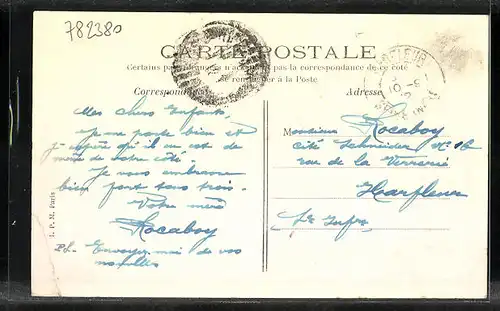 782380
CARTE POSTALE
Certains pays étrangers n'acceptent pas la correspondance de ce côté
Se renseigner à la Poste
Correspondance
Adresse
HARFLEUR
Mes chers Enfants,
Je me porte bien et
j'espère qu'il en est de
même de votre côté.
Je vous embrasse
bien fort tous trois.
Votre mère
Rocaboy
Ps. Envoyez-moi de vos
nouvelles
Monsieur Rocaboy
Cité Schneider N° 16
rue de la Verrerie
Harfleur
Sne Infre
I. P. M. Paris